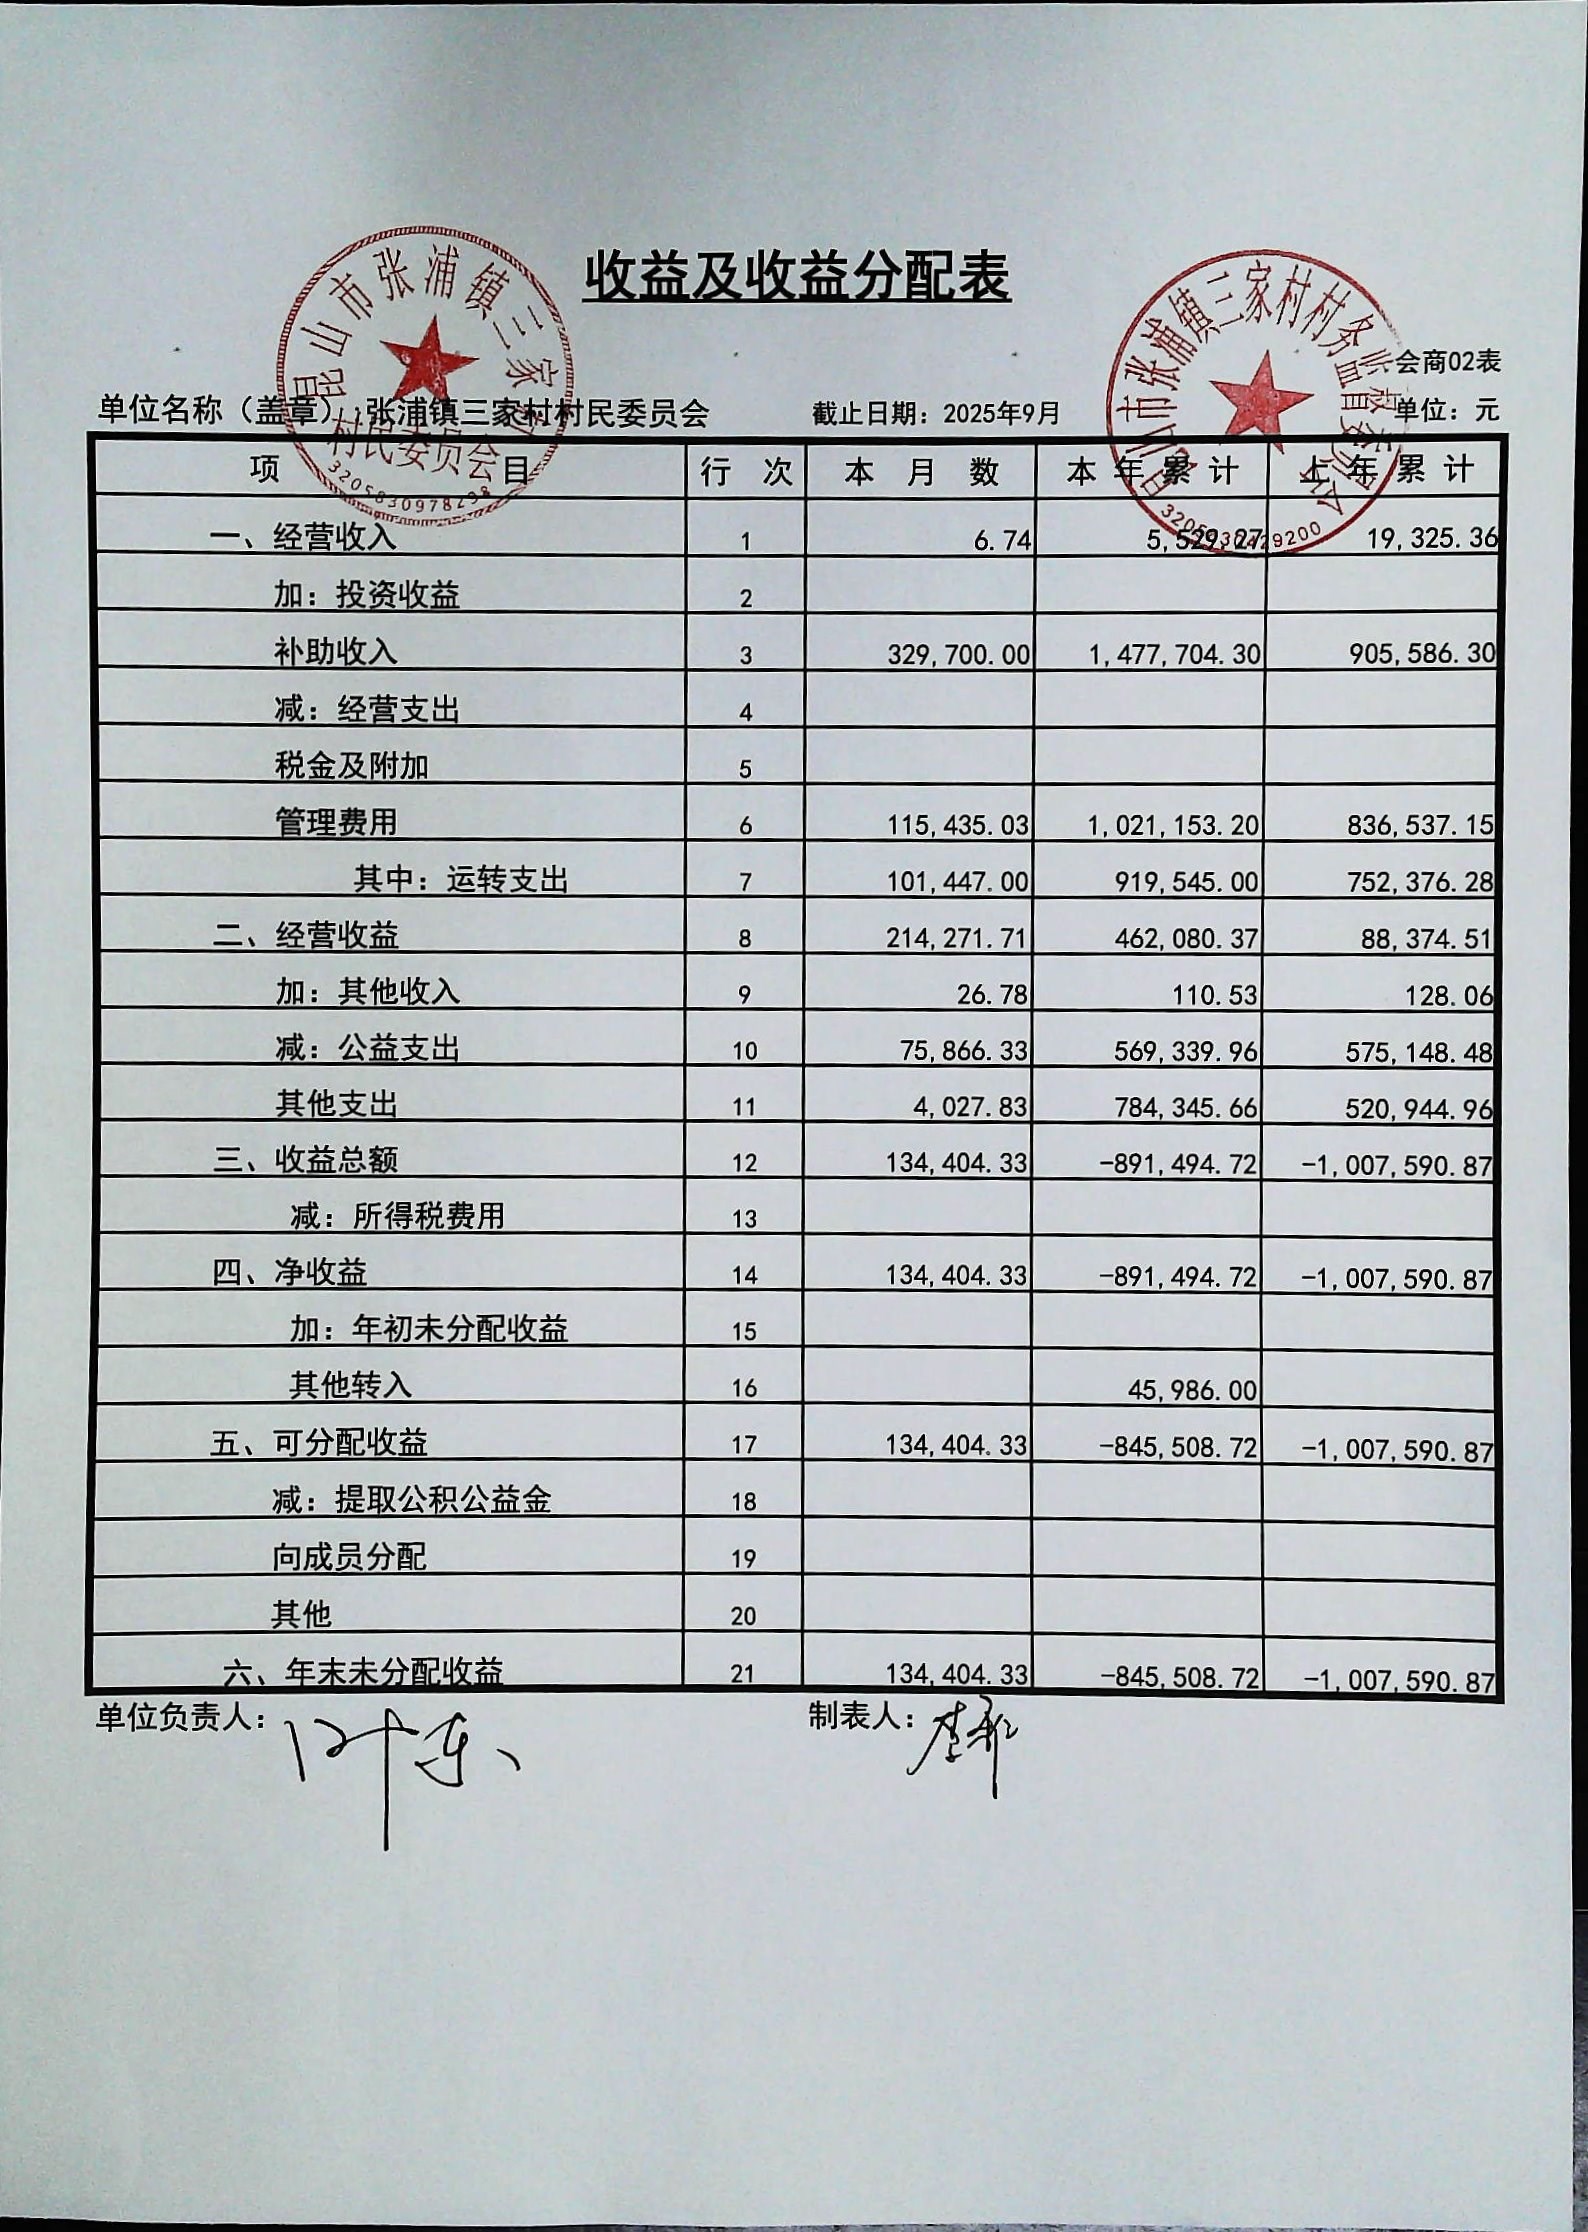 收益及收益分配表
会商02表
单位名称（盖章）:张浦镇三家村村民委员会 截止日期：2025年9月 单位：元
项 目 行 次 本 月 数 本 年 累 计 上 年 累 计
一、经营收入 1 6.74 5,529.27 19,325.36
加：投资收益 2
补助收入 3 329,700.00 1,477,704.30 905,586.30
减：经营支出 4
税金及附加 5
管理费用 6 115,435.03 1,021,153.20 836,537.15
其中：运转支出 7 101,447.00 919,545.00 752,376.28
二、经营收益 8 214,271.71 462,080.37 88,374.51
加：其他收入 9 26.78 110.53 128.06
减：公益支出 10 75,866.33 569,339.96 575,148.48
其他支出 11 4,027.83 784,345.66 520,944.96
三、收益总额 12 134,404.33 -891,494.72 -1,007,590.87
减：所得税费用 13
四、净收益 14 134,404.33 -891,494.72 -1,007,590.87
加：年初未分配收益 15
其他转入 16 45,986.00
五、可分配收益 17 134,404.33 -845,508.72 -1,007,590.87
减：提取公积公益金 18
向成员分配 19
其他 20
六、年末未分配收益 21 134,404.33 -845,508.72 -1,007,590.87
单位负责人： 制表人：
昆山市张浦镇三家村
村民委员会
昆山市张浦镇三家村村务监督委员会